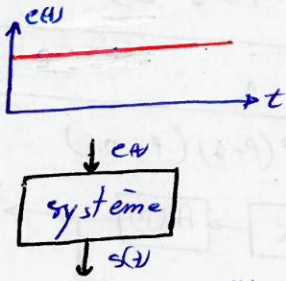 e(t)
t
e(t)
système
s(t)